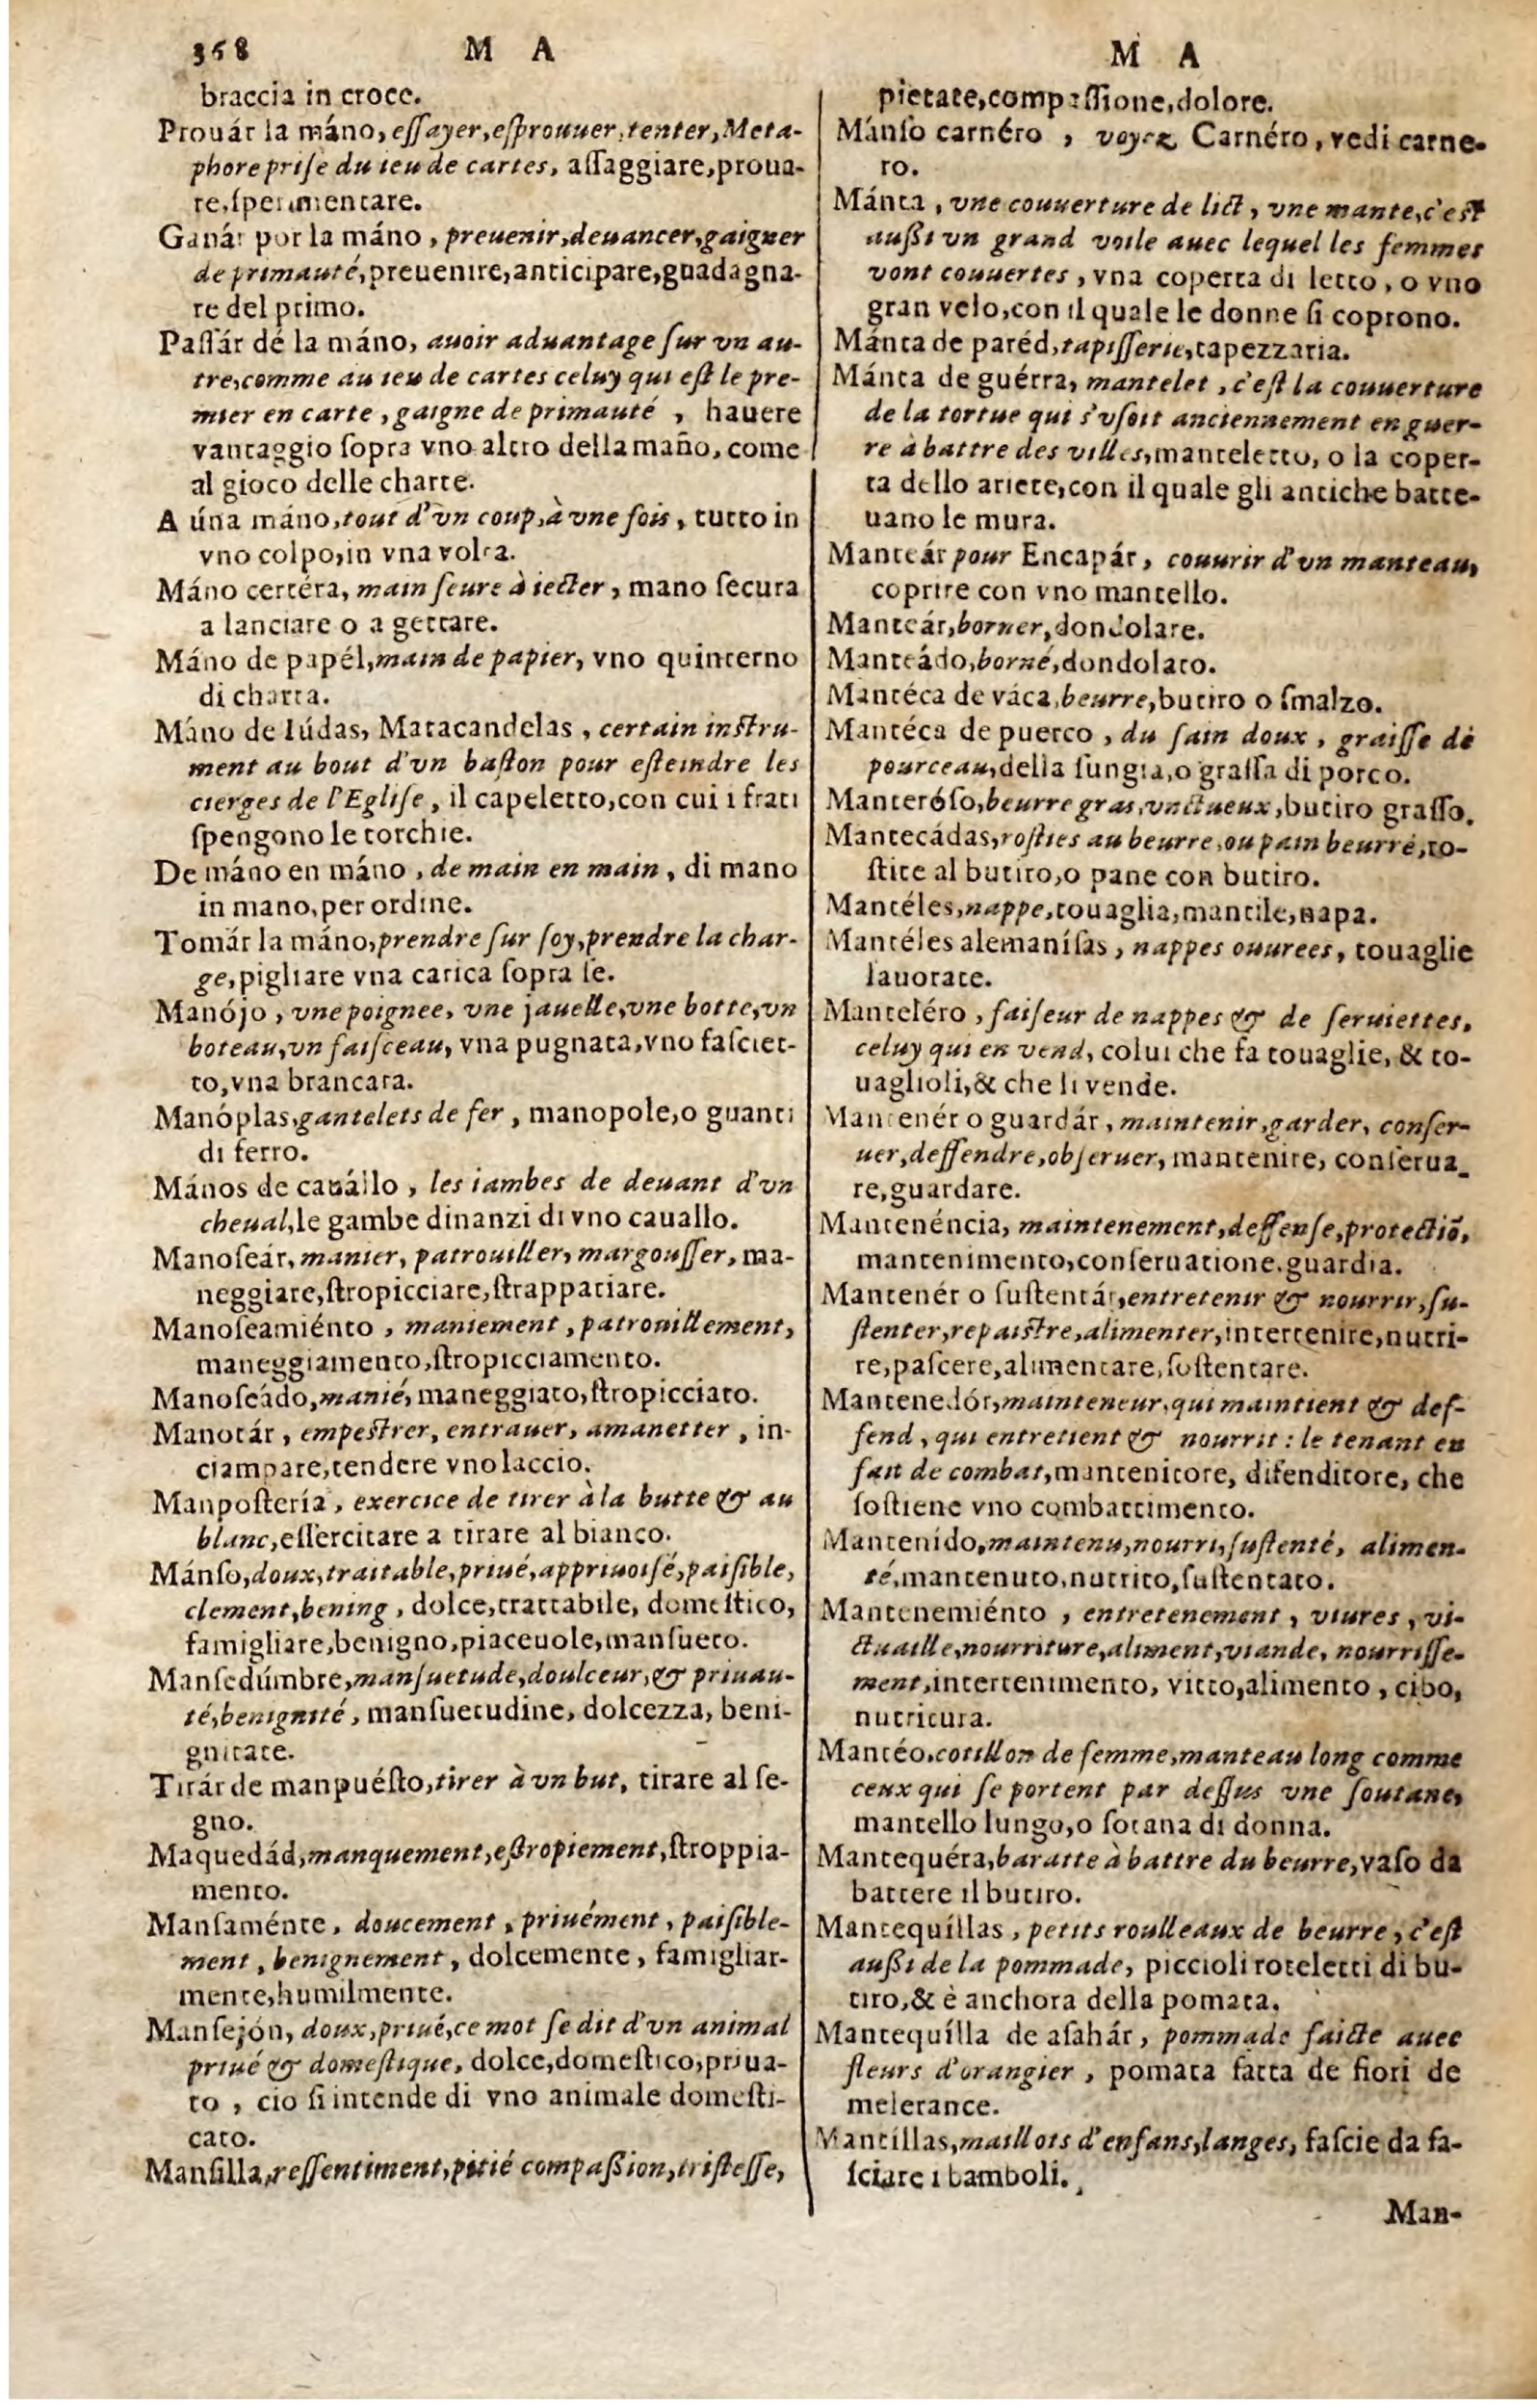 368 M A
braccia in croce.
Prouár la máno, eſſayer, eſprouuer, tenter, Meta-
phore priſe du ieu de cartes, aſſaggiare, proua-
re, ſperimentare.
Ganár por la máno, preuenir, deuancer, gaigner
de primauté, preuenire, anticipare, guadagna-
re del primo.
Paſſár dé la máno, auoir aduantage ſur vn au-
tre, comme au ieu de cartes celuy qui eſt le pre-
mier en carte, gaigne de primauté, hauere
vantaggio ſopra vno altro della maño, come
al gioco delle charte.
A úna máno, tout d'vn coup, à vne fois, tutto in
vno colpo, in vna volta.
Máno certéra, main ſeure à iecter, mano ſecura
a lanciare o a gettare.
Máno de papél, main de papier, vno quinterno
di charta.
Máno de Iúdas, Matacandelas, certain inſtru-
ment au bout d'vn baſton pour eſteindre les
cierges de l'Egliſe, il capeletto, con cui i frati
ſpengono le torchie.
De máno en máno, de main en main, di mano
in mano, per ordine.
Tomár la máno, prendre ſur ſoy, prendre la char-
ge, pigliare vna carica ſopra ſe.
Manójo, vne poignee, vne jauelle, vne botte, vn
boteau, vn faiſceau, vna pugnata, vno faſciet-
to, vna brancata.
Manóplas, gantelets de fer, manopole, o guanti
di ferro.
Mános de cauállo, les iambes de deuant d'vn
cheual, le gambe dinanzi di vno cauallo.
Manoſeár, manier, patrouiller, margouſſer, ma-
neggiare, ſtropicciare, ſtrappatiare.
Manoſeamiénto, maniement, patrouillement,
maneggiamento, ſtropicciamento.
Manoſeádo, manié, maneggiato, ſtropicciato.
Manotár, empeſtrer, entrauer, amanetter, in-
ciampare, tendere vno laccio.
Manpoſtería, exercice de tirer à la butte & au
blanc, eſſercitare a tirare al bianco.
Mánſo, doux, traitable, priué, appriuoiſé, paiſible,
clement, bening, dolce, trattabile, domeſtico,
famigliare, benigno, piaceuole, manſueto.
Manſedúmbre, manſuetude, doulceur, & priuau-
té, benignité, manſuetudine, dolcezza, beni-
gnitate.
Tirár de manpuéſto, tirer à vn but, tirare al ſe-
gno.
Maquedád, manquement, eſtropiement, ſtroppia-
mento.
Manſaménte, doucement, priuément, paiſible-
ment, benignement, dolcemente, famigliar-
mente, humilmente.
Manſejón, doux, priué, ce mot ſe dit d'vn animal
priué & domeſtique, dolce, domeſtico, priua-
to, cio ſi intende di vno animale domeſti-
cato.
Manſilla, reſſentiment, pitié compaßion, triſteſſe,
M A
pietate, compaſſione, dolore.
Mánſo carnéro, voyez Carnéro, vedi carne-
ro.
Mánta, vne couuerture de lict, vne mante, c'eſt
außi vn grand voile auec lequel les femmes
vont couuertes, vna coperta di letto, o vno
gran velo, con il quale le donne ſi coprono.
Mánta de paréd, tapiſſerie, tapezzaria.
Mánta de guérra, mantelet, c'eſt la couuerture
de la tortue qui s'vſoit anciennement en guer-
re à battre des villes, manteletto, o la coper-
ta dello ariete, con il quale gli antiche batte-
uano le mura.
Manteár pour Encapár, couurir d'vn manteau,
coprire con vno mantello.
Manteár, borner, dondolare.
Manteádo, borné, dondolato.
Mantéca de váca, beurre, butiro o ſmalzo.
Mantéca de puerco, du ſain doux, graiſſe de
pourceau, della ſungia, o graſſa di porco.
Manteróſo, beurre gras, vnctueux, butiro graſſo.
Mantecádas, roſties au beurre, ou pain beurré, to-
ſtite al butiro, o pane con butiro.
Mantéles, nappe, touaglia, mantile, napa.
Mantéles alemaníſas, nappes ouurees, touaglie
lauorate.
Manteléro, faiſeur de nappes & de ſeruiettes,
celuy qui en vend, colui che fa touaglie, & to-
uaglioli, & che li vende.
Mantenér o guardár, maintenir, garder, conſer-
uer, deffendre, obſeruer, mantenire, conſerua-
re, guardare.
Mantenéncia, maintenement, deffenſe, protectiõ,
mantenimento, conſeruatione, guardia.
Mantenér o ſuſtentár, entretenir & nourrir, ſu-
ſtenter, repaiſtre, alimenter, intertenire, nutri-
re, paſcere, alimentare, ſoſtentare.
Mantenedór, mainteneur, qui maintient & def-
fend, qui entretient & nourrit: le tenant en
fait de combat, mantenitore, difenditore, che
ſoſtiene vno combattimento.
Mantenído, maintenu, nourri, ſuſtenté, alimen-
té, mantenuto, nutrito, ſuſtentato.
Mantenemiénto, entretenement, viures, vi-
ctuaille, nourriture, aliment, viande, nourriſſe-
ment, intertenimento, vitto, alimento, cibo,
nutritura.
Mantéo, cotillon de femme, manteau long comme
ceux qui ſe portent par deſſus vne ſoutane,
mantello lungo, o ſotana di donna.
Mantequéra, baratte à battre du beurre, vaſo da
battere il butiro.
Mantequíllas, petits roulleaux de beurre, c'eſt
außi de la pommade, piccioli roteletti di bu-
tiro, & è anchora della pomata.
Mantequílla de aſahár, pommade faicte auec
fleurs d'orangier, pomata fatta de fiori de
melerance.
Mantíllas, maillots d'enfans, langes, faſcie da fa-
ſciare i bamboli.
Man-